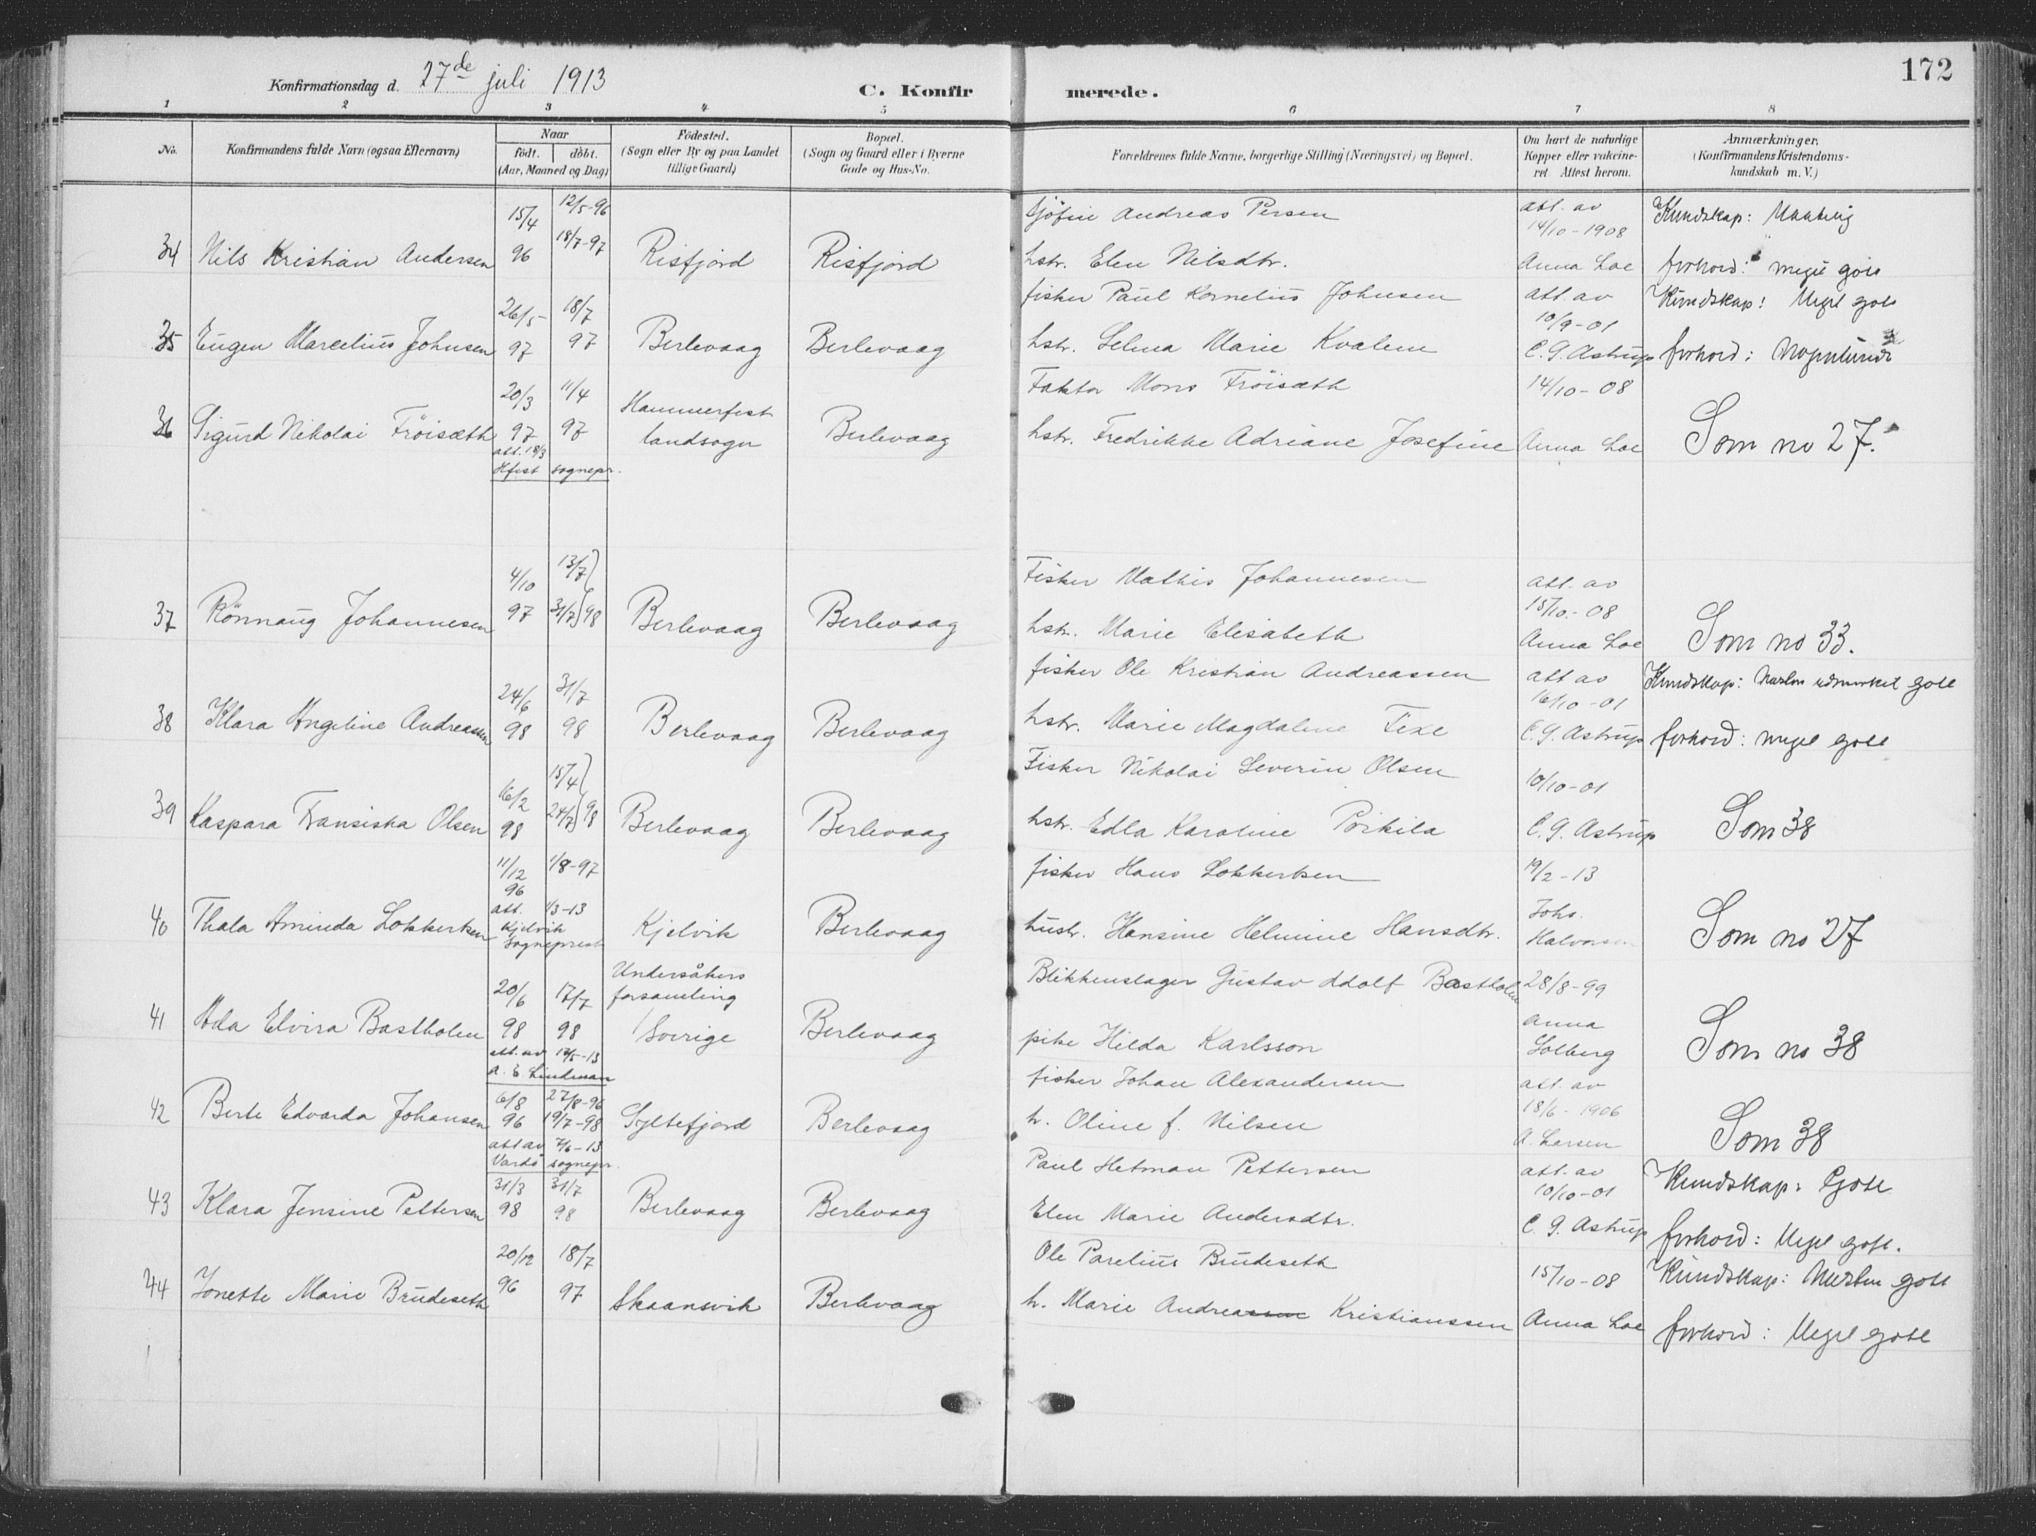 172
Konfirmationsdag d. 27de juli 1913
C. Konfirmerede.
1 2 3 4 5 6 7 8
No.
Konfirmandens fulde Navn (ogsaa Efternavn)
Naar
født. døbt.
(Aar, Maaned og Dag)
Fødested.
(Sogn eller By og paa Landet
tillige Gaard)
Bopæl.
(Sogn og Gaard eller i Byerne
Gade og Hus-No.
Forældrenes fulde Navne, borgerlige Stilling (Næringsvei) og Bopæl.
Om havt de naturlige
Kopper eller vakcine-
ret. Attest herom.
Anmærkninger.
(Konfirmandens Kristendoms-
kundskab m. V.)
15/4 12/5-96 Andreas Persen att. av Kundskap:
18/7-97 14/10-1908
34 Nils Kristian Andersen 96 Risfjord Risfjord hstr. Elen Nilsdtr. Anna Loe forhold: meget
26/5 18/7 fisker Paul Kornelius Johnsen att. av Kundskap: Meget gott
10/9-01
35 Eugen Marcelius Johnsen 97 97 Berlevaag Berlevaag hstr. Selma Marie Kvalem C. G. Astrup forhold:
20/3 11/4 Hammerfest Faktor Mons Fröisæth 14/10-08
36 Sigurd Nikolai Fröisæth 97 97 landsogn Berlevaag hstr. Fredrikke Adriane Josefine Anna Loe Som no 27.
att. 18/3
Hfest sognepr.
4/10 13/7 Fisker Mathis Johannesen att. av
15/10-08
37 Rönnaug Johannesen 97 31/7 98 Berlevaag Berlevaag hstr. Marie Elisabeth Anna Loe Som no 33.
24/6 31/7 fisker Ole Kristian Andreassen att av Kundskap: Næsten udmerket gott
16/10-01
38 Klara Angeline Andreassen 98 98 Berlevaag Berlevaag hstr. Marie Magdalene Fixe C. G. Astrup forhold: meget gott
16/2 15/4 Fisker Nikolai Severin Olsen 10/10-01
39 Kaspara Fransiska Olsen 98 24/7 98 Berlevaag Berlevaag hstr. Edla Karoline Porkila C. G. Astrup Som 38
11/12 1/8-97 fisker Hans Lokkertsen 19/2-13
96
att. 1/3-13 Johs.
40 Thala Aminda Lokkertsen Kjelvik Kjelvik Berlevaag hustr. Hansine Helmine Hansdtr. Halvorsen Som no 27
sogneprest
20/6 17/7 Undersåkers Blikkenslager Gustav Adolf Bastholm 28/8-99
forsamling
41 Ada Elvira Bastholm 98 98 Sverige Berlevaag pike Hilda Karlsson Anna Solberg Som no 38
att. av 12/5-13
A. E. Lindman
6/8 27/8-96 fisker Johan Alexandersen att. av
18/6-1906
42 Berte Edvarda Johansen 96 19/7-98 Syltefjord Berlevaag h. Oline f. Nilsen A. Larsen Som 38
att av 7/6-13
Vardö sognepr.
31/3 31/7 Paul Hetman Pettersen att. av Kundskap: Gott
10/10-01
43 Klara Jensine Pettersen 98 98 Berlevaag Berlevaag Elen Marie Andersdtr. C. G. Astrup forhold: Meget gott.
20/12 18/7 Ole Parelius Brudeseth 15/10-08 Kundskap: Næsten gott
44 Jonette Marie Brudeseth 96 97 Skaansvik Berlevaag h. Marie Andreassen Kristianssen Anna Loe forhold: Meget gott